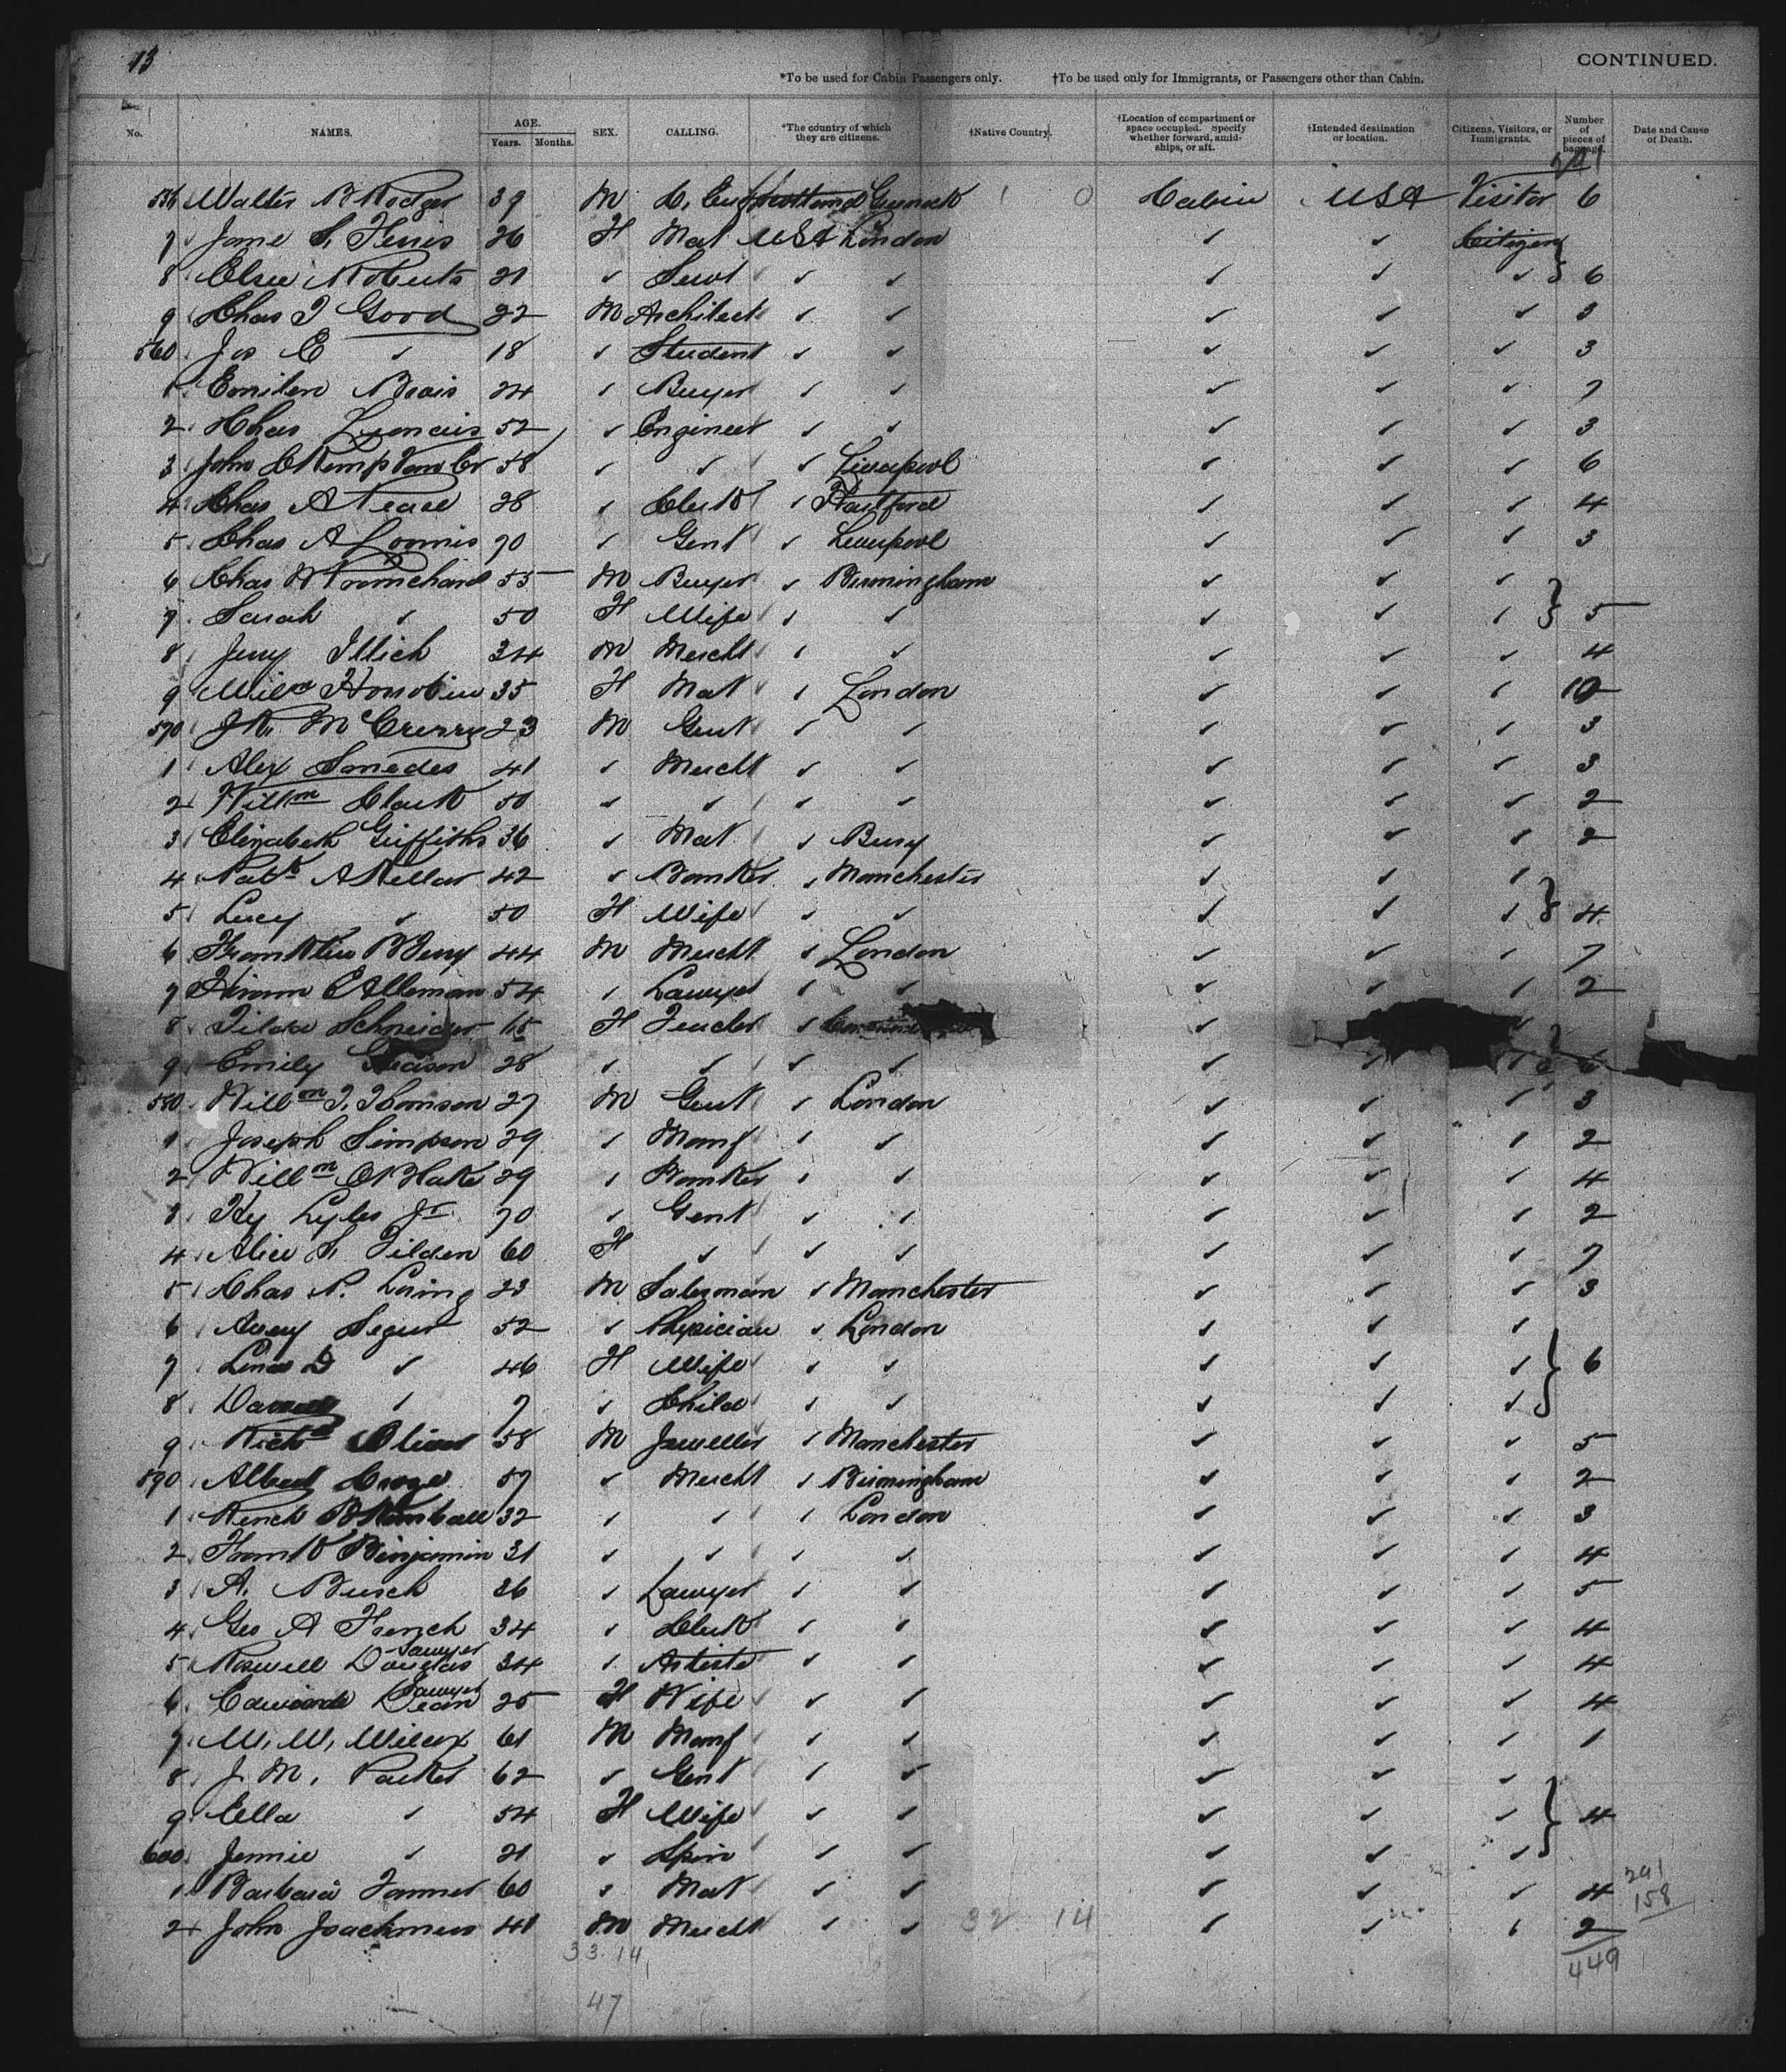 13
CONTINUED.
*To be used for Cabin Passengers only. †To be used only for Immigrants, or Passengers other than Cabin.
No. NAMES. AGE. Years. Months. SEX. CALLING. *The country of which they are citizens. †Native Country. †Location of compartment or space occupied. Specify whether forward, amidships, or aft. †Intended destination or location. Citizens, Visitors, or Immigrants. Number of pieces of baggage. Date and Cause of Death.
291
556 Walter B Rodger 39 M C. Eng Scotland Greenock 1 0 Cabin USA Visitor 6
7 Jane S. Ferris 26 F Mat USA London ✓ ✓ Citizen
8 Elsie Roberts 21 ✓ Servt ✓ ✓ ✓ ✓ ✓ } 6
9 Chas I Good 22 M Architect ✓ ✓ ✓ ✓ ✓ 3
560 Jos E ✓ 18 ✓ Student ✓ ✓ ✓ ✓ ✓ 3
1 24 ✓ Buyer ✓ ✓ ✓ ✓ ✓ 7
2 Chas 52 ✓ Engineer ✓ ✓ ✓ ✓ ✓ 3
3 John C Kemp Van 58 ✓ ✓ ✓ Liverpool ✓ ✓ ✓ 6
4 Chas A Pease 28 ✓ Clerk ✓ Hartford ✓ ✓ ✓ 4
5 Chas A Loomis 70 ✓ Gent ✓ Liverpool ✓ ✓ ✓ 3
6 Chas 55 M Buyer ✓ Birmingham ✓ ✓ ✓
7 Sarah ✓ 50 F Wife ✓ ✓ ✓ ✓ ✓ } 5
8 Jerry Illich 34 M Mercht ✓ ✓ ✓ ✓ ✓ 4
9 35 F Mat ✓ London ✓ ✓ ✓ 10
570 J. R. McCreery 23 M Gent ✓ ✓ ✓ ✓ ✓ 3
1 Alex Smedes 41 ✓ Mercht ✓ ✓ ✓ ✓ ✓ 3
2 Willm Clark 50 ✓ ✓ ✓ ✓ ✓ ✓ ✓ 2
3 Elizabeth Griffiths 36 ✓ Mat ✓ Bury ✓ ✓ ✓ 2
4 A Kellar 42 ✓ Banker ✓ Manchester ✓ ✓ ✓
5 Lucy ✓ 50 F Wife ✓ ✓ ✓ ✓ ✓ } 4
6 Franklin Berry 44 M Mercht ✓ London ✓ ✓ ✓ 7
7 Hiram C Alleman 54 ✓ Lawyer ✓ ✓ ✓ ✓ ✓ 2
8 Tilda Schneider 65 F Teacher ✓ ✓ ✓
9 Emily 28 ✓ ✓ ✓ ✓ ✓ ✓ ✓ } 6
580 Willm T. Thomson 27 M Gent ✓ London ✓ ✓ ✓ 3
1 Joseph Simpson 29 ✓ Manf ✓ ✓ ✓ ✓ ✓ 2
2 Willm O Blake 29 ✓ Banker ✓ ✓ ✓ ✓ ✓ 4
3 Hy Lyles Jr 70 ✓ Gent ✓ ✓ ✓ ✓ ✓ 2
4 Alice S. Tilden 60 F ✓ ✓ ✓ ✓ ✓ ✓ 7
5 Chas P. Loring 23 M Salesman ✓ Manchester ✓ ✓ ✓ 3
6 Avery Segur 52 ✓ Physician ✓ London ✓ ✓ ✓
7 Lina D ✓ 46 F Wife ✓ ✓ ✓ ✓ ✓ } 6
8 ✓ 7 ✓ Child ✓ ✓ ✓ ✓ ✓
9 Richd Oliver 58 M Jeweller ✓ Manchester ✓ ✓ ✓ 5
590 Albert 57 ✓ Mercht ✓ Birmingham ✓ ✓ ✓ 2
1 Kimball 32 ✓ ✓ ✓ London ✓ ✓ ✓ 3
2 Frank Benjamin 31 ✓ ✓ ✓ ✓ ✓ ✓ ✓ 4
3 A. Busch 26 ✓ Lawyer ✓ ✓ ✓ ✓ ✓ 5
4 Geo A French 34 ✓ Clerk ✓ ✓ ✓ ✓ ✓ 4
Sawyer
5 Roswell Douglas 34 ✓ Artiste ✓ ✓ ✓ ✓ ✓ 4
Sawyer
6 Dean 25 F Wife ✓ ✓ ✓ ✓ ✓ 4
7 W. W. Wilcox 61 M Manf ✓ ✓ ✓ ✓ ✓ 1
8 J. M. Parker 62 ✓ Gent ✓ ✓ ✓ ✓ ✓
9 Ella ✓ 54 F Wife ✓ ✓ ✓ ✓ ✓ } 4
600 Jennie ✓ 21 ✓ Spin ✓ ✓ ✓ ✓ ✓
1 Barbara Tanner 60 ✓ Mat ✓ ✓ ✓ ✓ ✓ 4 291
158
2 John Joachimsen 41 M Mercht ✓ ✓ 32 14 ✓ ✓ ✓ 2
33.14
449
47